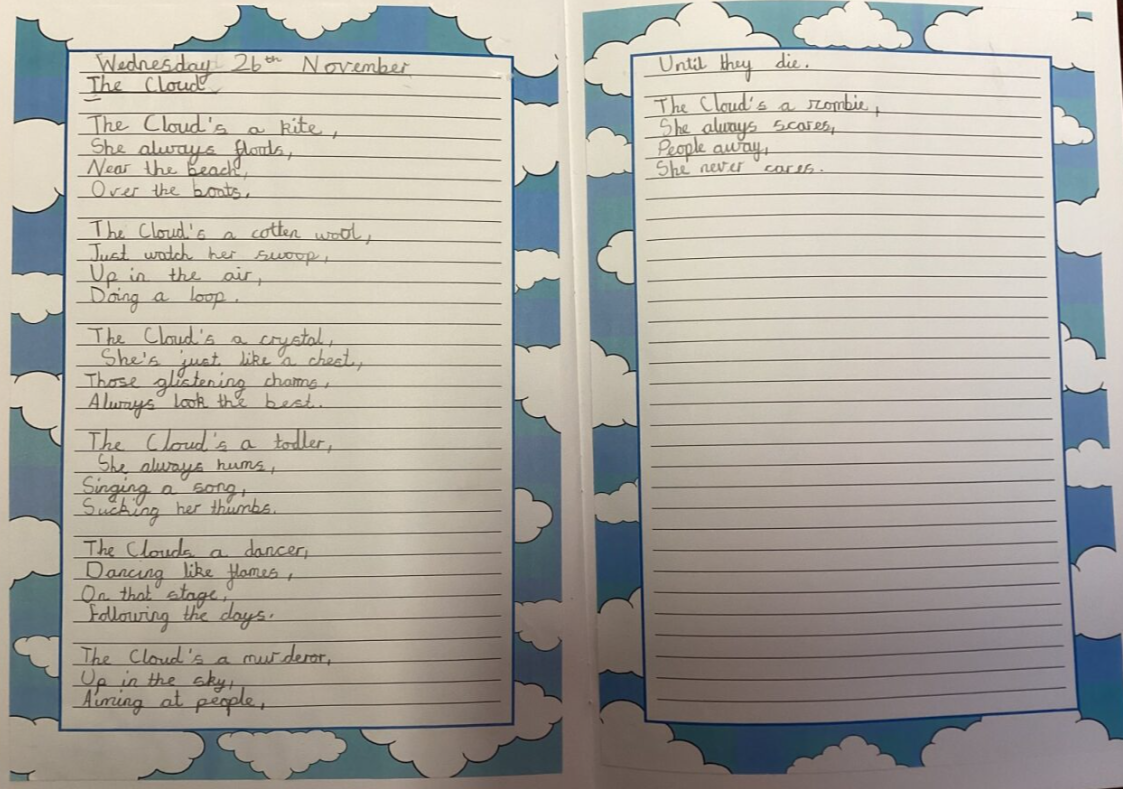 Wednesday 26th November
The Cloud
The Cloud's a kite,
She always floods,
Near the beach,
Over the boats.
The Cloud's a cotten wool,
Just watch her swoop,
Up in the air,
Doing a loop.
The Cloud's a crystal,
She's just like a chest,
Those glistening charms,
Always look the best.
The Cloud's a todler,
She always hums,
Singing a song,
Sucking her thumbs.
The Clouds a dancer,
Dancing like flames,
On that stage,
Following the days.
The Cloud's a murderor,
Up in the sky,
Aiming at people,
Until they die.
The Cloud's a zombie,
She always scares,
People away,
She never cares.